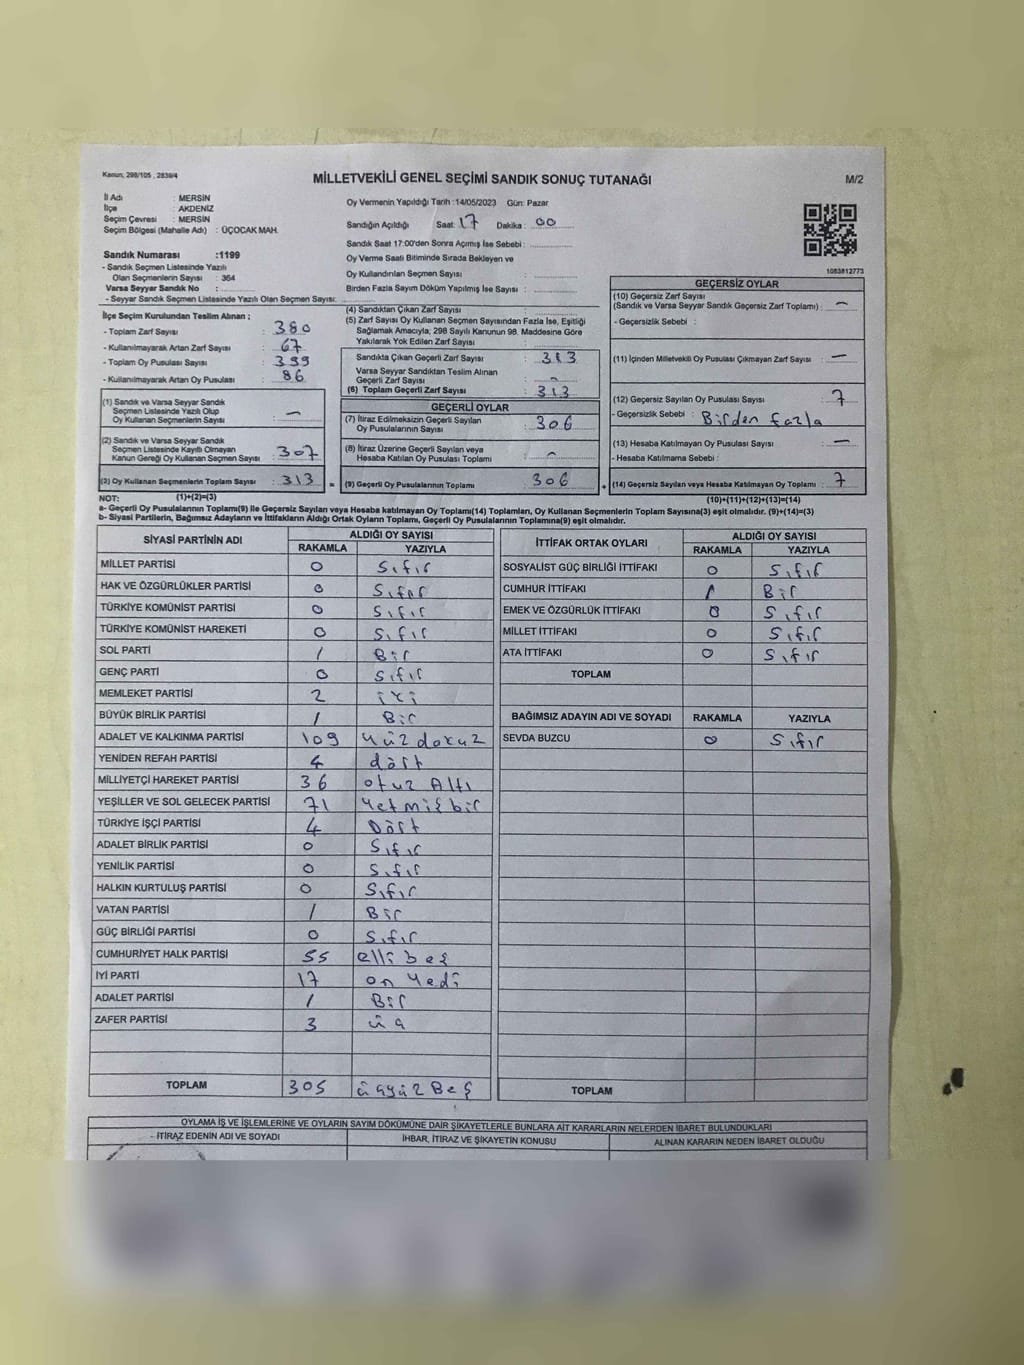 Kanun; 298/105 , 2839/4
MİLLETVEKİLİ GENEL SEÇİMİ SANDIK SONUÇ TUTANAĞI
M/2
İl Adı : MERSİN
İlçe : AKDENİZ
Seçim Çevresi : MERSİN
Seçim Bölgesi (Mahalle Adı) : ÜÇOCAK MAH.
Sandık Numarası :1199
- Sandık Seçmen Listesinde Yazılı
Olan Seçmenlerin Sayısı : 364
Varsa Seyyar Sandık No :
- Seyyar Sandık Seçmen Listesinde Yazılı Olan Seçmen Sayısı:
Oy Vermenin Yapıldığı Tarih :14/05/2023 Gün: Pazar
Sandığın Açıldığı Saat: 17 Dakika : 00
Sandık Saat 17:00'den Sonra Açımış İse Sebebi :
Oy Verme Saati Bitiminde Sırada Bekleyen ve
Oy Kullandırılan Seçmen Sayısı :
Birden Fazla Sayım Döküm Yapılmış İse Sayısı :
1083812773
İlçe Seçim Kurulundan Teslim Alınan ;
- Toplam Zarf Sayısı : 380
- Kullanılmayarak Artan Zarf Sayısı : 67
- Toplam Oy Pusulası Sayısı : 399
- Kullanılmayarak Artan Oy Pusulası : 86
(1) Sandık ve Varsa Seyyar Sandık
Seçmen Listesinde Yazılı Olup
Oy Kullanan Seçmenlerin Sayısı : —
(2) Sandık ve Varsa Seyyar Sandık
Seçmen Listesinde Kayıtlı Olmayan
Kanun Gereği Oy Kullanan Seçmen Sayısı : 307
(3) Oy Kullanan Seçmenlerin Toplam Sayısı : 313 =
(4) Sandıktan Çıkan Zarf Sayısı :
(5) Zarf Sayısı Oy Kullanan Seçmen Sayısından Fazla İse, Eşitliği
Sağlamak Amacıyla; 298 Sayılı Kanunun 98. Maddesine Göre
Yakılarak Yok Edilen Zarf Sayısı :
Sandıkta Çıkan Geçerli Zarf Sayısı : 313
Varsa Seyyar Sandıktan Teslim Alınan
Geçerli Zarf Sayısı : —
(6) Toplam Geçerli Zarf Sayısı : 313
GEÇERLİ OYLAR
(7) İtiraz Edilmeksizin Geçerli Sayılan
Oy Pusulalarının Sayısı : 306
(8) İtiraz Üzerine Geçerli Sayılan veya
Hesaba Katılan Oy Pusulası Toplamı : —
(9) Geçerli Oy Pusulalarının Toplamı : 306 +
GEÇERSİZ OYLAR
(10) Geçersiz Zarf Sayısı
(Sandık ve Varsa Seyyar Sandık Geçersiz Zarf Toplamı) : —
- Geçersizlik Sebebi :
(11) İçinden Milletvekili Oy Pusulası Çıkmayan Zarf Sayısı : —
(12) Geçersiz Sayılan Oy Pusulası Sayısı : 7
- Geçersizlik Sebebi : Birden fazla
(13) Hesaba Katılmayan Oy Pusulası Sayısı : —
- Hesaba Katılmama Sebebi :
(14) Geçersiz Sayılan veya Hesaba Katılmayan Oy Toplamı : 7
NOT: (1)+(2)=(3) (10)+(11)+(12)+(13)=(14)
a- Geçerli Oy Pusulalarının Toplamı(9) ile Geçersiz Sayılan veya Hesaba katılmayan Oy Toplamı(14) Toplamları, Oy Kullanan Seçmenlerin Toplam Sayısına(3) eşit olmalıdır. (9)+(14)=(3)
b- Siyasi Partilerin, Bağımsız Adayların ve İttifakların Aldığı Ortak Oyların Toplamı, Geçerli Oy Pusulalarının Toplamına(9) eşit olmalıdır.
SİYASİ PARTİNİN ADI ALDIĞI OY SAYISI
RAKAMLA YAZIYLA
MİLLET PARTİSİ 0 Sıfır
HAK VE ÖZGÜRLÜKLER PARTİSİ 0 Sıfır
TÜRKİYE KOMÜNİST PARTİSİ 0 Sıfır
TÜRKİYE KOMÜNİST HAREKETİ 0 Sıfır
SOL PARTİ 1 Bir
GENÇ PARTİ 0 Sıfır
MEMLEKET PARTİSİ 2 iki
BÜYÜK BİRLİK PARTİSİ 1 Bir
ADALET VE KALKINMA PARTİSİ 109 Yüz dokuz
YENİDEN REFAH PARTİSİ 4 dört
MİLLİYETÇİ HAREKET PARTİSİ 36 otuz Altı
YEŞİLLER VE SOL GELECEK PARTİSİ 71 Yetmiş bir
TÜRKİYE İŞÇİ PARTİSİ 4 Dört
ADALET BİRLİK PARTİSİ 0 Sıfır
YENİLİK PARTİSİ 0 Sıfır
HALKIN KURTULUŞ PARTİSİ 0 Sıfır
VATAN PARTİSİ 1 Bir
GÜÇ BİRLİĞİ PARTİSİ 0 Sıfır
CUMHURİYET HALK PARTİSİ 55 elli beş
İYİ PARTİ 17 on Yedi
ADALET PARTİSİ 1 Bir
ZAFER PARTİSİ 3 üç
TOPLAM 305 üçyüz Beş
İTTİFAK ORTAK OYLARI ALDIĞI OY SAYISI
RAKAMLA YAZIYLA
SOSYALİST GÜÇ BİRLİĞİ İTTİFAKI 0 Sıfır
CUMHUR İTTİFAKI 1 Bir
EMEK VE ÖZGÜRLÜK İTTİFAKI 0 Sıfır
MİLLET İTTİFAKI 0 Sıfır
ATA İTTİFAKI 0 Sıfır
TOPLAM
BAĞIMSIZ ADAYIN ADI VE SOYADI RAKAMLA YAZIYLA
SEVDA BUZCU 0 Sıfır
TOPLAM
OYLAMA İŞ VE İŞLEMLERİNE VE OYLARIN SAYIM DÖKÜMÜNE DAİR ŞİKAYETLERLE BUNLARA AİT KARARLARIN NELERDEN İBARET BULUNDUKLARI
- İTİRAZ EDENİN ADI VE SOYADI İHBAR, İTİRAZ VE ŞİKAYETİN KONUSU ALINAN KARARIN NEDEN İBARET OLDUĞU